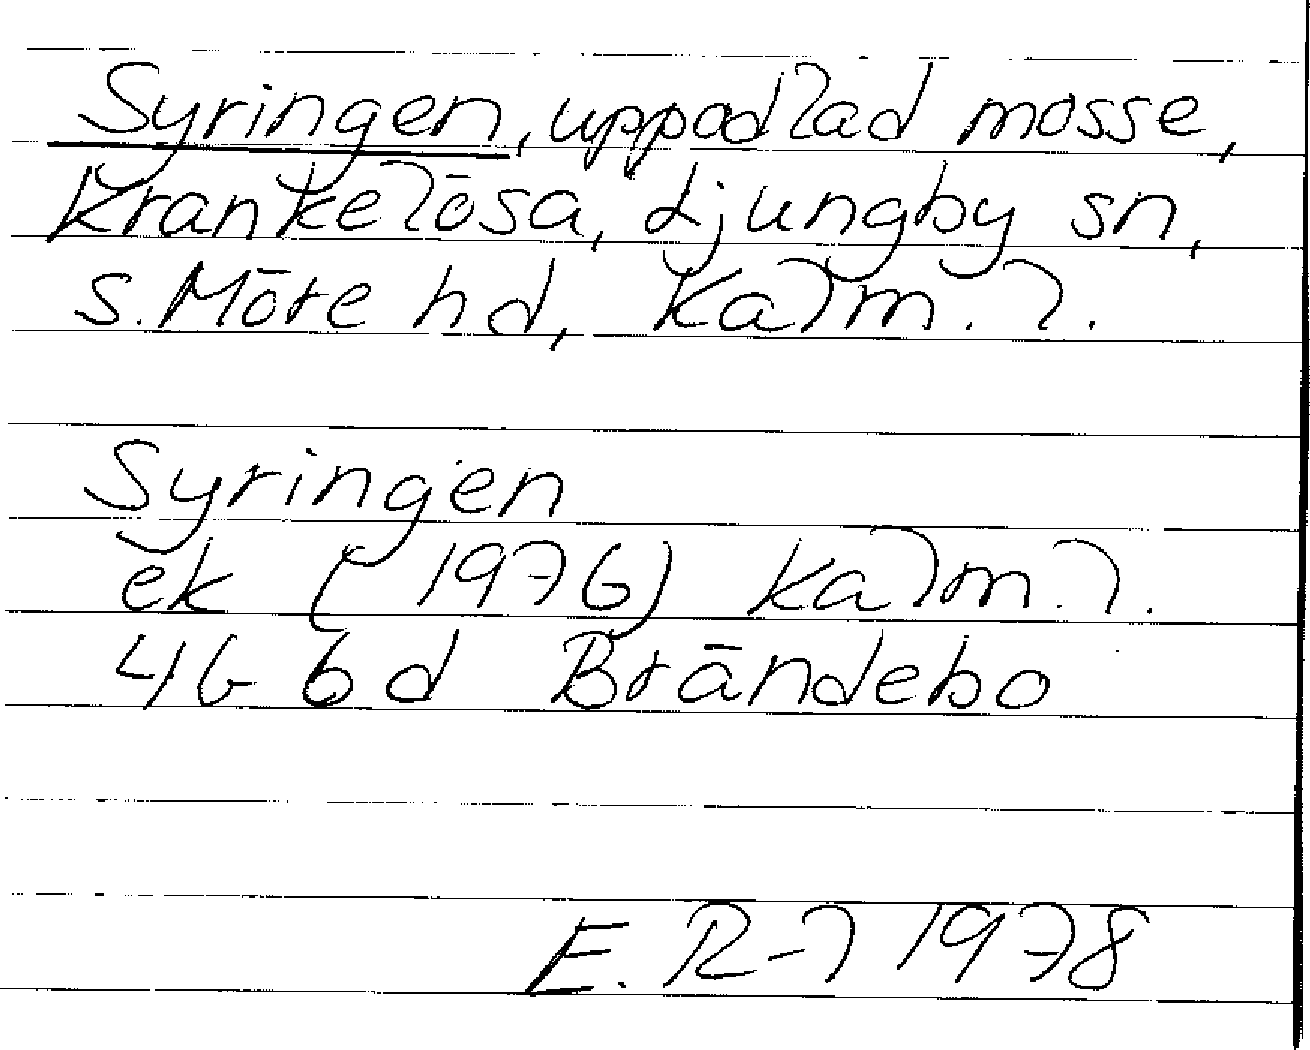 Syringen, uppodlad mosse,
Krankelösa, Ljungby sn,
S. Möre hd, Kalm. l.
Syringen
ek (1976) Kalm. l.
4G 6d Brändebo
E. R-l 1978